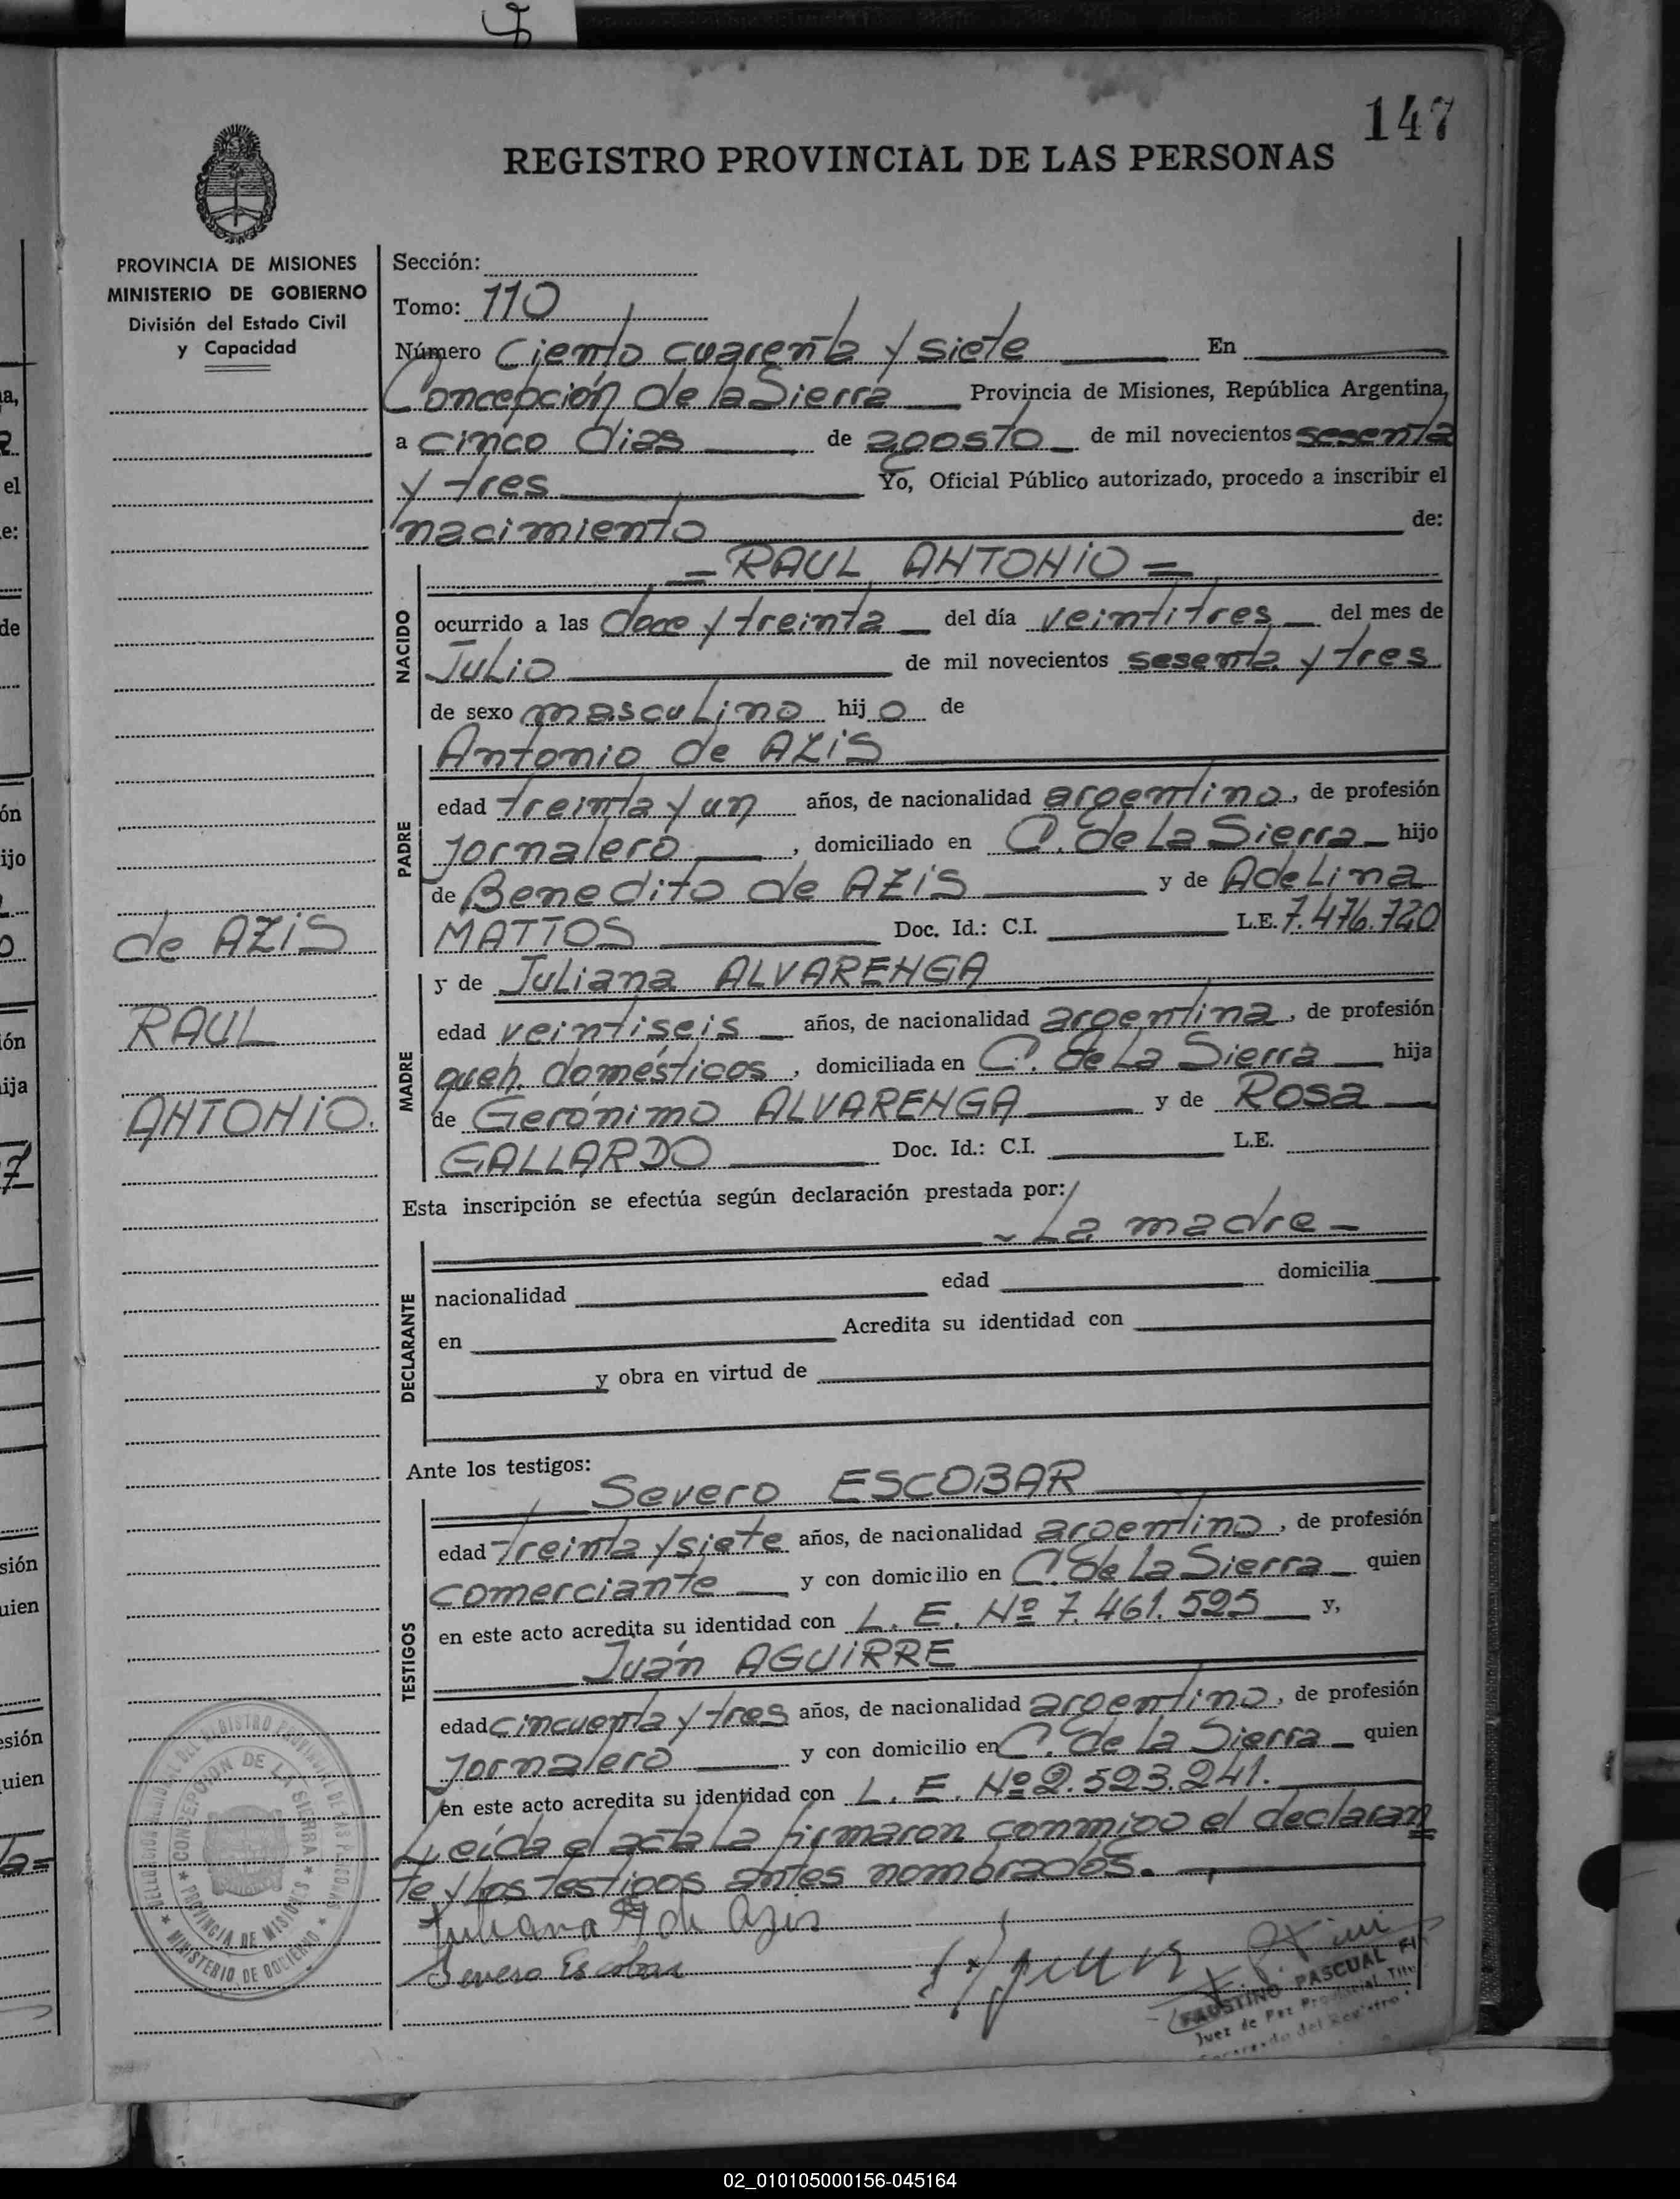 147
REGISTRO PROVINCIAL DE LAS PERSONAS
PROVINCIA DE MISIONES
MINISTERIO DE GOBIERNO
División del Estado Civil
y Capacidad
de AZiS
RAUL
ANTONiO.
Sección:
Tomo: 110
Número Ciento cuarenta y siete En
Concepción de la Sierra Provincia de Misiones, República Argentina,
a cinco dias de agosto de mil novecientos sesenta
y tres Yo, Oficial Público autorizado, procedo a inscribir el
nacimiento de:
= RAUL ANTONiO =
NACIDO
ocurrido a las doce y treinta del día veintitres del mes de
Julio de mil novecientos sesenta y tres
de sexo masculino hijo de
Antonio de AZiS
PADRE
edad treinta y un años, de nacionalidad argentino, de profesión
jornalero, domiciliado en C. de La Sierra hijo
de Benedito de AZiS y de Adelina
MATTOS Doc. Id.: C.I. L.E. 7.476.720
y de Juliana ALVARENGA
MADRE
edad veintiseis años, de nacionalidad argentina, de profesión
queh. domésticos, domiciliada en C. de La Sierra hija
de Gerónimo ALVARENGA y de Rosa
GALLARDO Doc. Id.: C.I. L.E.
Esta inscripción se efectúa según declaración prestada por:
- La madre -
DECLARANTE
nacionalidad edad domicilia
en Acredita su identidad con
y obra en virtud de
Ante los testigos:
Severo ESCOBAR
TESTIGOS
edad treinta y siete años, de nacionalidad argentino, de profesión
comerciante y con domicilio en C. de La Sierra quien
en este acto acredita su identidad con L. E. Nº 7.461.525 y,
Juán AGUiRRE
edad cincuenta y tres años, de nacionalidad argentino, de profesión
jornalero y con domicilio en C. de La Sierra quien
en este acto acredita su identidad con L. E. Nº 2.523.241.
Leída el acta La firmaron conmigo el declaran=
te y los testigos antes nombrados.
Juliana A de Azis
Severo Escobar
FAUSTINO PASCUAL
Juez de Paz Provincial
CONCEPCION DE LA SIERRA
PROVINCIA DE MISIONES
MINISTERIO DE GOBIERNO
02_010105000156-045164